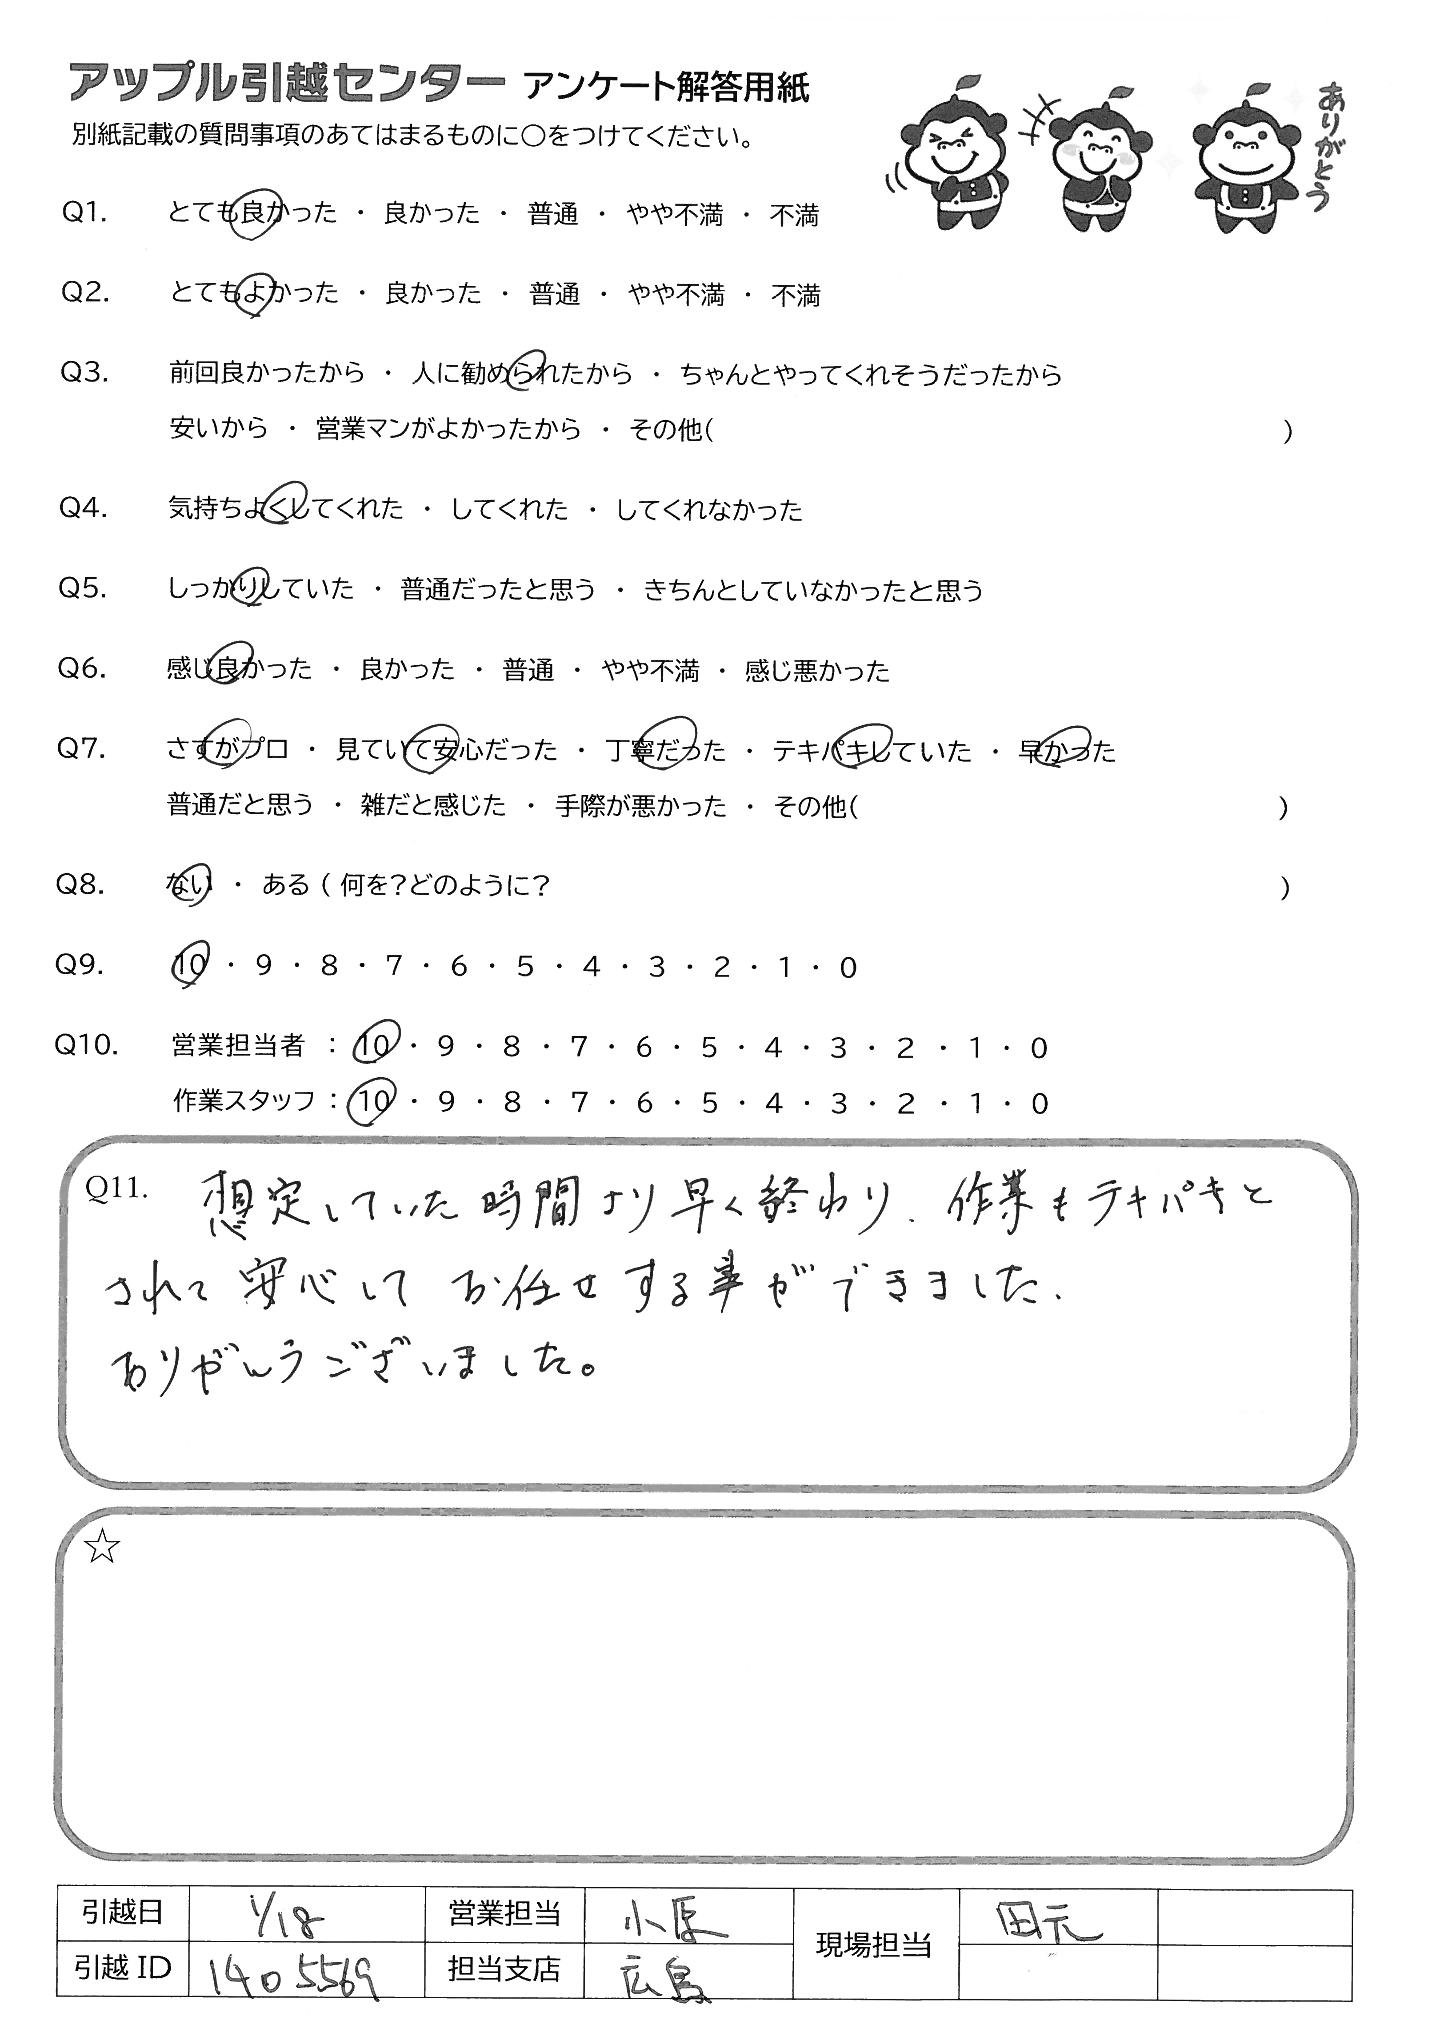 アップル引越センター アンケート解答用紙
別紙記載の質問事項のあてはまるものに○をつけてください。
ありがとう
Q1. とても良かった ・ 良かった ・ 普通 ・ やや不満 ・ 不満
Q2. とてもよかった ・ 良かった ・ 普通 ・ やや不満 ・ 不満
Q3. 前回良かったから ・ 人に勧められたから ・ ちゃんとやってくれそうだったから
安いから ・ 営業マンがよかったから ・ その他( )
Q4. 気持ちよくしてくれた ・ してくれた ・ してくれなかった
Q5. しっかりしていた ・ 普通だったと思う ・ きちんとしていなかったと思う
Q6. 感じ良かった ・ 良かった ・ 普通 ・ やや不満 ・ 感じ悪かった
Q7. さすがプロ ・ 見ていて安心だった ・ 丁寧だった ・ テキパキしていた ・ 早かった
普通だと思う ・ 雑だと感じた ・ 手際が悪かった ・ その他( )
Q8. ない ・ ある ( 何を?どのように? )
Q9. 10 ・ 9 ・ 8 ・ 7 ・ 6 ・ 5 ・ 4 ・ 3 ・ 2 ・ 1 ・ 0
Q10. 営業担当者 : 10 ・ 9 ・ 8 ・ 7 ・ 6 ・ 5 ・ 4 ・ 3 ・ 2 ・ 1 ・ 0
作業スタッフ : 10 ・ 9 ・ 8 ・ 7 ・ 6 ・ 5 ・ 4 ・ 3 ・ 2 ・ 1 ・ 0
Q11. 想定していた時間より早く終わり、作業もテキパキと
されて安心してお任せする事ができました。
ありがとうございました。
☆
引越日 1/18 営業担当 小原 現場担当 田元
引越ID 1405569 担当支店 広島